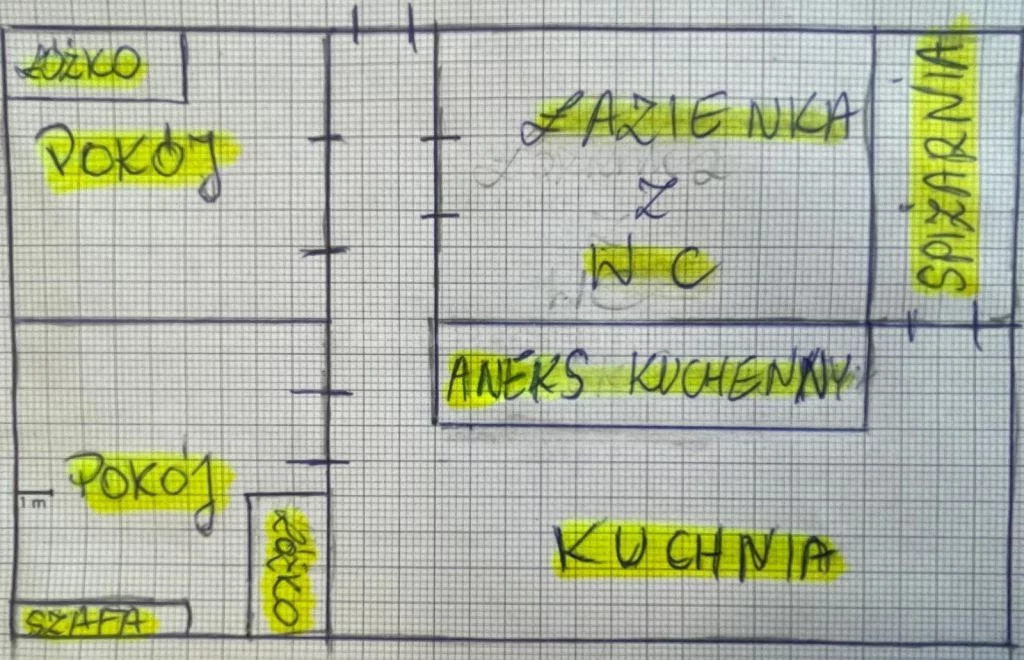 ŁÓŻKO
POKÓJ
ŁAZIENKA
Z
WC
SPIŻARNIA
ANEKS KUCHENNY
POKÓJ
1 m
ŁÓŻKO
SZAFA
KUCHNIA